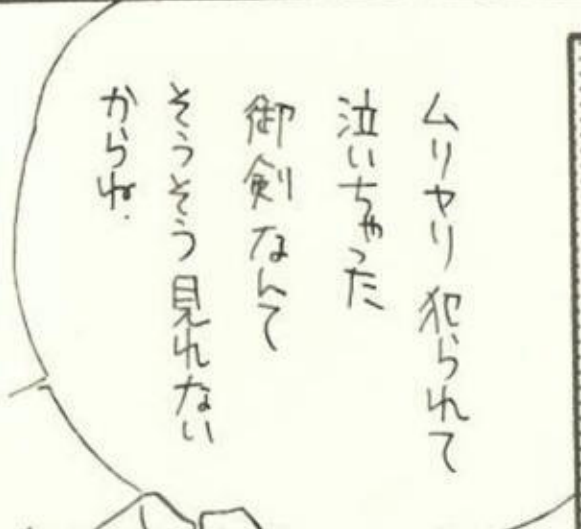 ムリヤリ犯られて
泣いちゃった
御剣なんて
そうそう見れない
からね.